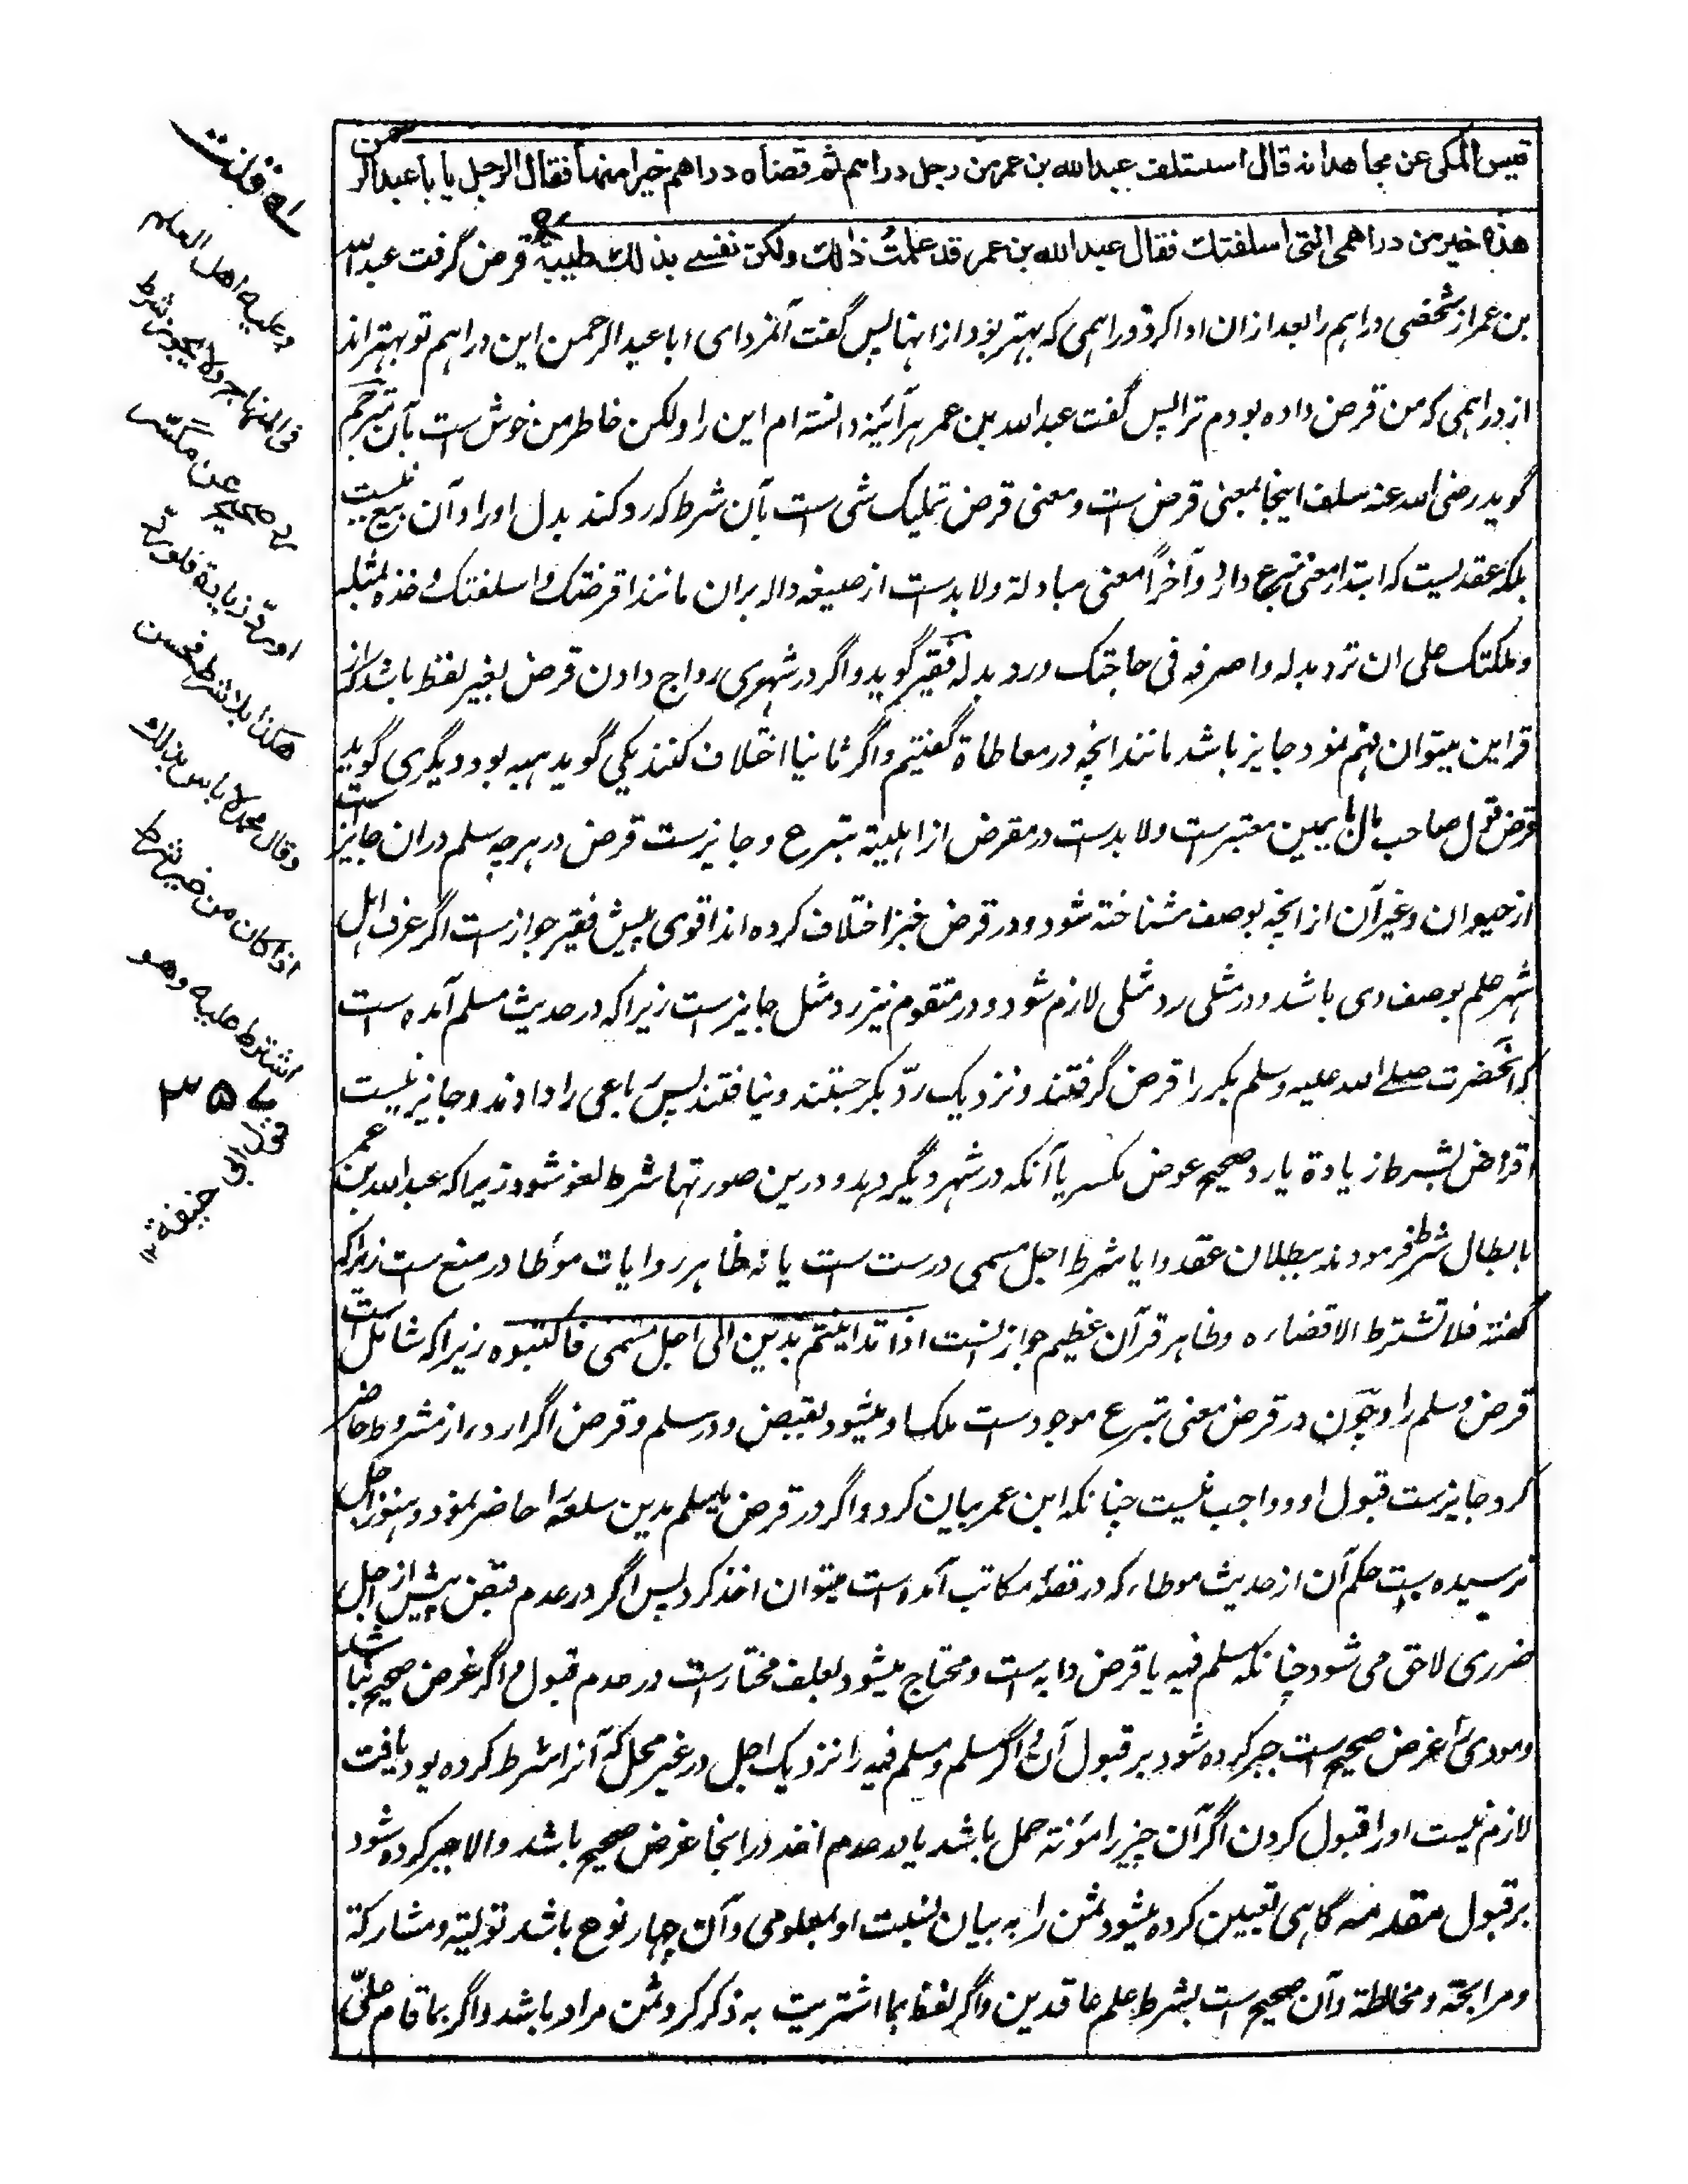 قيس المكى عن مجاهد انه قال استسلف عبد الله بن عمر من رجل دراهم ثم قضاه دراهم خيرا منها فقال الرجل يا با عبد الرحمن
هذه خير من دراهمى التى اسلفتك فقال عبد الله بن عمر قد علمتُ ذالك ولكن نفسے بذلك طيبة قرض گرفت عبد الله
بن عمر از شخصی دراہم را بعد ازان ادا کرد دراہمی که بہتر بود ازانہا پس گفت آنمرد ای ابا عبد الرحمن این دراہم تو بہتر اند
از دراہمی که من قرض داده بودم ترا پس گفت عبد الله بن عمر ہرآئینه دانسته ام این را ولکن خاطر من خوش است بآن مترجم
گوید رضی الله عنه سلف اینجا بمعنی قرض است و معنی قرض تملیک شی است بآن شرط که رد کند بدل اورا و آن بیع نیست
بلکه عقدیست که ابتدا معنی تبرع دارد و آخراً معنی مبادلة ولا بدست از صیغه داله بران مانند اقرضتک و اسلفتک و خذه بمثله
و ملکتک علی ان ترد بدله واصرفه فی حاجتک ورد بدله فقیر گوید و اگر در شہری رواج دادن قرض بغیر لفظ باشد که از
قراین میتوان فہم نمود جایز باشد مانند انچه در معاطاة گفتیم و اگر ثانیا اختلاف کنند یکی گوید ہبه بود و دیگری گوید
قرض قول صاحب مال با یمین معتبرست ولا بدست در مقرض از اہلیة تبرع و جایزست قرض در ہرچه سلم دران جایز ست
از حیوان و غیر آن از انچه بوصف شناخته شود و در قرض خبز اختلاف کرده اند اقوی پیش فقیر جواز ست اگر عرف اہل
شہر علم بوصف وی باشد و در مثلی رد مثلی لازم شود و در متقوم نیز رد مثل جایزست زیرا که در حدیث مسلم آمده است
که آنحضرت صلے الله علیه وسلم بکر را قرض گرفتند و نزدیک ردّ بکر جستند و نیافتند پس رباعی را دادند و جایز نیست
اقراض بشرط زیادة یا رد صحیح عوض مکسر یا آنکه در شہر دیگر دہد و درین صورتہا شرط لغو شود زیرا که عبد الله بن عمر
بابطال شرط فرمودند نه ببطلان عقد و ایا شرط اجل مسمی درست ست یا نه ظاہر روایات موطا در منع ست زیرا که
گفته فلا تشترط الا قضاءه و ظاہر قرآن عظیم جواز ست اذا تداینتم بدین الی اجل مسمی فاکتبوه زیرا که شامل است
قرض و سلم را و چون در قرض معنی تبرع موجودست ملک او میشود بقبض و در سلم و قرض اگر اردء از مشروط حاضر
کرد جایزست قبول او و واجب نیست چنانکه ابن عمر بیان کرد و اگر در قرض یا سلم مدین سلعه را حاضر نمود و ہنوز اجل
نرسیده است حکم آن از حدیث موطاء که در قصهٔ مکاتب آمده است میتوان اخذ کرد پس اگر در عدم قبض پیش از اجل
ضرری لاحق می شود چنانکه مسلم فیه یا قرض دابه است و محتاج میشود بعلف مختارست در عدم قبول و اگر غرض صحیح نباشد
و مودی را غرض صحیح ست جبر کرده شود بر قبول آن و اگر مسلم مسلم فیه را نزدیک اجل در غیر محل که آنرا شرط کرده بود یافت
لازم نیست اورا قبول کردن اگر آن چیز را مؤنة حمل باشد یا در عدم اخذ در انجا غرض صحیح باشد والا جبر کرده شود
بر قبول مقدمه گاہی تعیین کرده میشود ثمن را به بیان نسبت او بمعلومی و آن چہار نوع باشد تولیة و مشارکة
و مرابحة و مخالطة و آن صحیح ست بشرط علم عاقدین و اگر لفظ بما اشتریت به ذکر کرد ثمن مراد باشد و اگر بما قام علیّ
له قلت
وعليه اهل العلم
فى المنهاج ولا يجوز شرط
رد صحيح عن مكسر
او ردّ زيادة فلو رد
هكذا بلا شرط فحسن
وقال محمد لا باس بذلك
اذا كان من غير شرط
اشترط عليه وهو
قول ابى
حنيفة ١٢